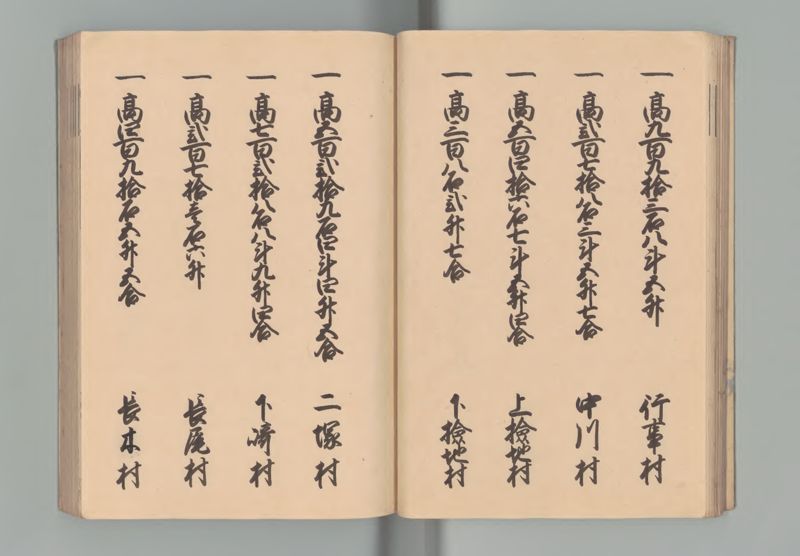 一 高九百九拾三石八斗五升 行事村
一 高弐百七拾八石三斗五升七合 中川村
一 高五百四拾六石七斗五升四合 上撿地村
一 高三百八石弐升七合 下撿地村
一 高五百弐拾九石四斗四升五合 二塚村
一 高七百弐拾八石八斗九升四合 下崎村
一 高弐百七拾壱石六升 長尾村
一 高四百九拾石五升五合 長木村